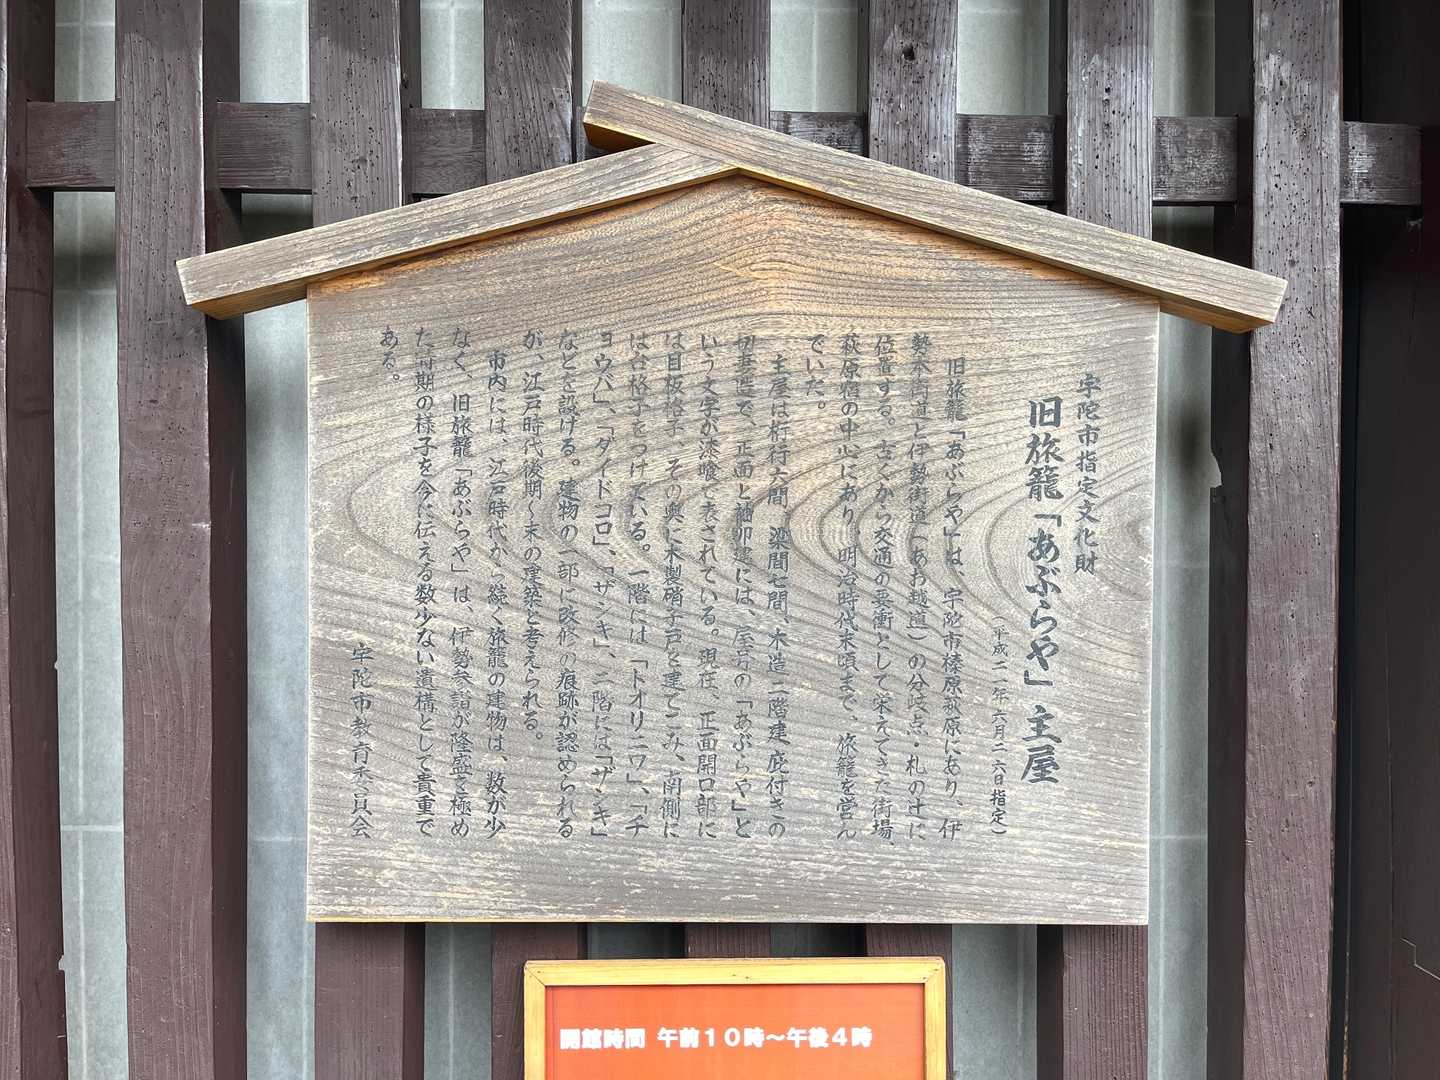 宇陀市指定文化財
旧旅籠「あぶらや」主屋
(平成二一年六月二六日指定)
旧旅籠「あぶらや」は、宇陀市榛原萩原にあり、伊
勢本街道と伊勢街道(あお越道)の分岐点・札の辻に
位置する。古くから交通の要衝として栄えてきた街場、
萩原宿の中心にあり、明治時代末頃まで、旅籠を営ん
でいた。
主屋は桁行六間、梁間七間、木造二階建庇付きの
切妻造で、正面と袖卯建には、屋号の「あぶらや」と
いう文字が漆喰で表されている。現在、正面開口部に
は目板格子、その奥に木製硝子戸を建てこみ、南側に
は台格子をつけている。一階には「トオリニワ」、「チ
ョウバ」、「ダイドコロ」、「ザシキ」、二階には「ザシキ」
などを設ける。建物の一部に改修の痕跡が認められる
が、江戸時代後期~末の建築と考えられる。
市内には、江戸時代から続く旅籠の建物は、数が少
なく、旧旅籠「あぶらや」は、伊勢参詣が隆盛を極め
た時期の様子を今に伝える数少ない遺構として貴重で
ある。
宇陀市教育委員会
開館時間 午前10時~午後4時